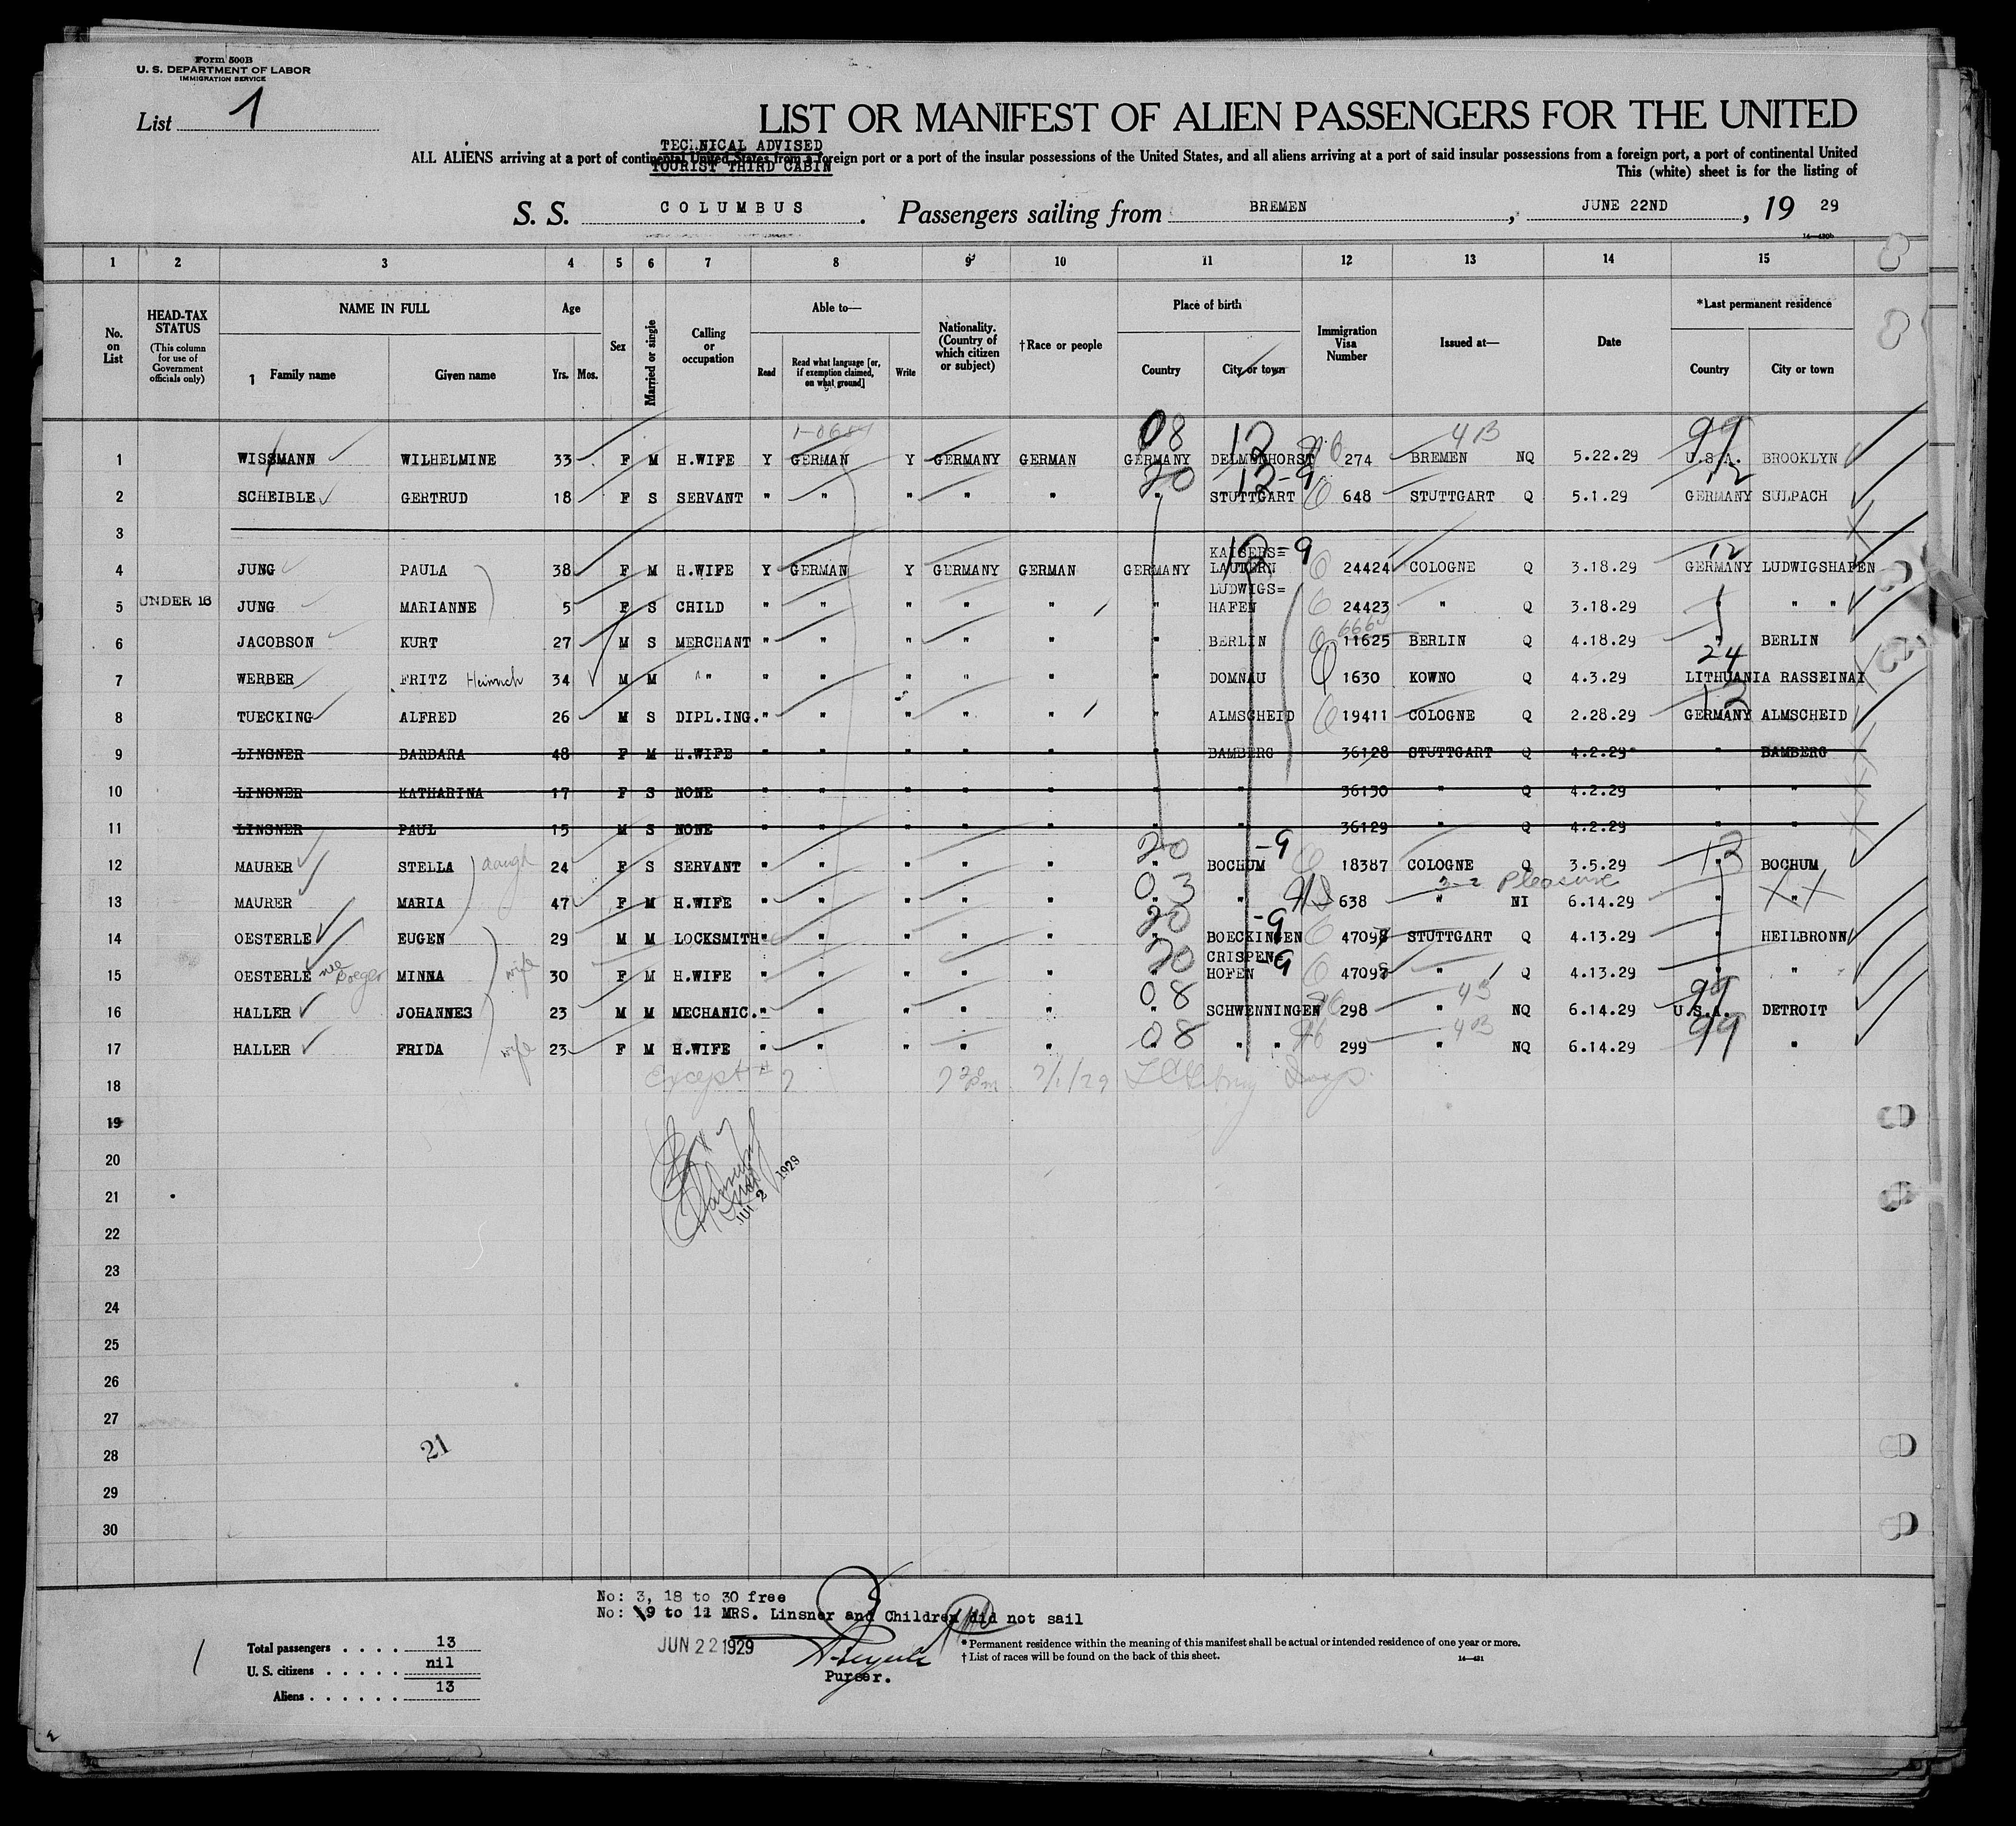 Form 500B
U. S. DEPARTMENT OF LABOR
IMMIGRATION SERVICE
List 1
LIST OR MANIFEST OF ALIEN PASSENGERS FOR THE UNITED
TECHNICAL ADVISED
ALL ALIENS arriving at a port of continental United States from a foreign port or a port of the insular possessions of the United States, and all aliens arriving at a port of said insular possessions from a foreign port, a port of continental United
TOURIST THIRD CABIN
This (white) sheet is for the listing of
S. S. COLUMBUS. Passengers sailing from BREMEN, JUNE 22ND, 19 29
1 2 3 4 5 6 7 8 9 10 11 12 13 14 15
No. on List
HEAD-TAX STATUS
(This column for use of Government officials only)
NAME IN FULL
1 Family name
Given name
Age
Yrs. Mos.
Sex
Married or single
Calling or occupation
Able to—
Read
Read what language [or, if exemption claimed, on what ground]
Write
Nationality. (Country of which citizen or subject)
†Race or people
Place of birth
Country
City or town
Immigration Visa Number
Issued at—
Date
*Last permanent residence
Country
City or town
08 12 4B 99
1 WISSMANN WILHELMINE 33 F M H.WIFE Y GERMAN Y GERMANY GERMAN GERMANY DELMENHORST 274 BREMEN NQ 5.22.29 U.S.A. BROOKLYN
20 12-9 12
2 SCHEIBLE GERTRUD 18 F S SERVANT " " " " " " STUTTGART 648 STUTTGART Q 5.1.29 GERMANY SULPACH
3
4 JUNG PAULA 38 F M H.WIFE Y GERMAN Y GERMANY GERMAN GERMANY KAISERS=LAUTERN -9 24424 COLOGNE Q 3.18.29 12 GERMANY LUDWIGSHAFEN
5 UNDER 16 JUNG MARIANNE 5 F S CHILD " " " " " " LUDWIGS=HAFEN 24423 " Q 3.18.29 " " "
6 JACOBSON KURT 27 M S MERCHANT " " " " " " BERLIN 11625 BERLIN Q 4.18.29 " BERLIN
7 WERBER FRITZ Heinrich 34 M M " " " " " " " DOMNAU 1630 KOWNO Q 4.3.29 24 LITHUANIA RASSEINAI
8 TUECKING ALFRED 26 M S DIPL.ING. " " " " " " ALMSCHEID 19411 COLOGNE Q 2.28.29 12 GERMANY ALMSCHEID
9 LINSNER BARBARA 48 F M H.WIFE " " " " " " BAMBERG 36128 STUTTGART Q 4.2.29 " BAMBERG
10 LINSNER KATHARINA 17 F S NONE " " " " " " " 36130 " Q 4.2.29 " "
11 LINSNER PAUL 15 M S NONE " " " " " " " 36129 " Q 4.2.29 " "
12 MAURER STELLA daugh 24 F S SERVANT " " " " " 20 " BOCHUM -9 18387 COLOGNE Q 3.5.29 12 " BOCHUM
3-2 Pleasure
13 MAURER MARIA 47 F M H.WIFE " " " " " 03 " " 638 " NI 6.14.29 " "
14 OESTERLE EUGEN 29 M M LOCKSMITH " " " " " 20 " BOECKINGEN -9 47098 STUTTGART Q 4.13.29 " HEILBRONN
15 OESTERLE nee Boeger MINNA wife 30 F M H.WIFE " " " " " 20 " CRISPEN=HOFEN -9 47097 " Q 4.13.29 " "
16 HALLER JOHANNES 23 M M MECHANIC. " " " " " 08 " SCHWENNINGEN 298 " 4B NQ 6.14.29 99 U.S.A. DETROIT
17 HALLER FRIDA wife 23 F M H.WIFE " " " " " 08 " " " 299 " 4B NQ 6.14.29 99 "
18 Except # 7 7/1/29 Insp.
19
20
JUL 2 1929
21
22
23
24
25
26
27
28 21
29
30
No: 3, 18 to 30 free
No: 9 to 11 MRS. Linsner and Children did not sail
JUN 22 1929
Purser.
Total passengers . . . . 13
U. S. citizens . . . . . nil
Aliens . . . . . . 13
* Permanent residence within the meaning of this manifest shall be actual or intended residence of one year or more.
† List of races will be found on the back of this sheet.